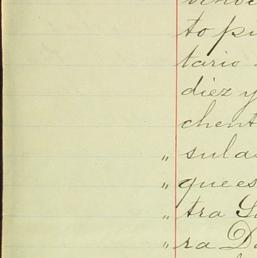 to pu
tario
diez y
chent
„ sulas
„ que es
„ tra S
„ ra D